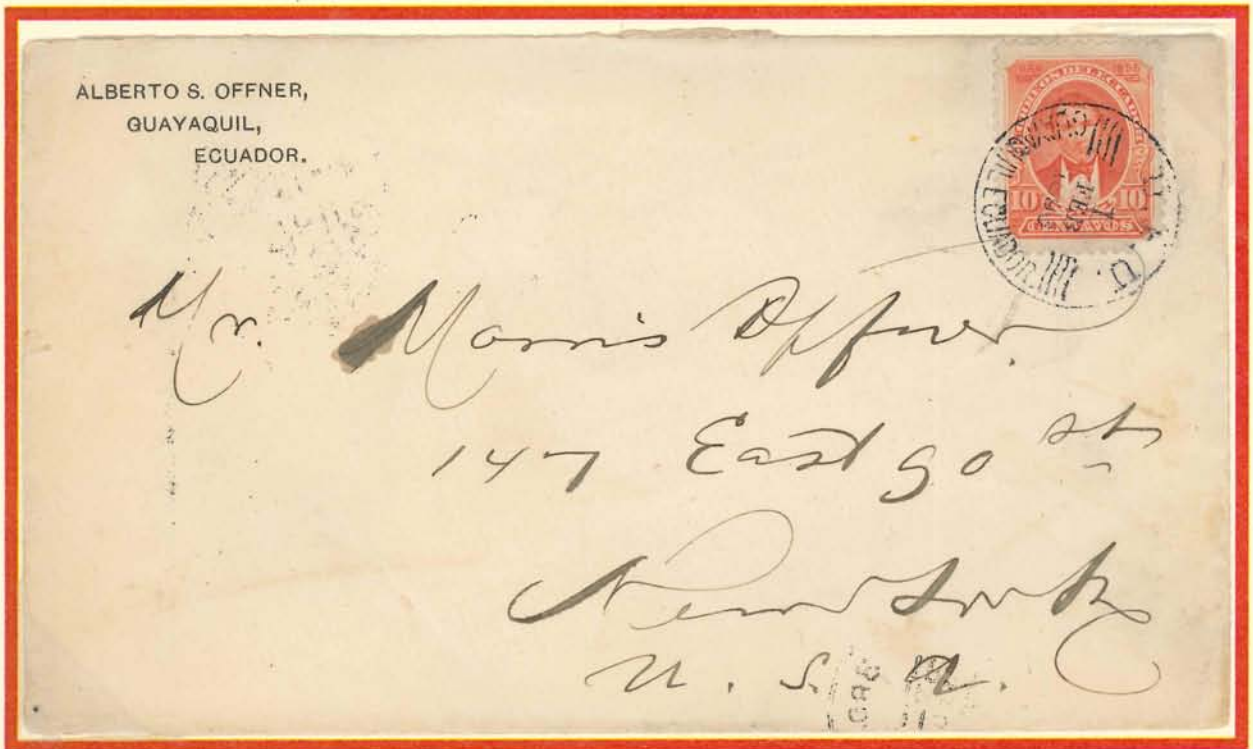 ALBERTO S. OFFNER,
GUAYAQUIL,
ECUADOR.
CORREOS DEL ECUADOR
10 10
CENTAVOS
GUAYAQUIL ECUADOR
FEB
Mr. Morris Offner.
147 East 90 st
New York
U. S. A.